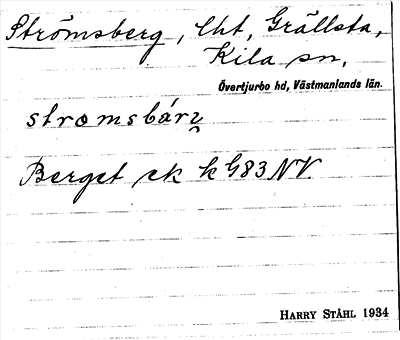 Strömsberg, lht, Grällsta,
Kila sn,
Övertjurbo hd, Västmanlands län.
stromsbárγ
Berget ek k G83 NV.
HARRY STÅHL 1934